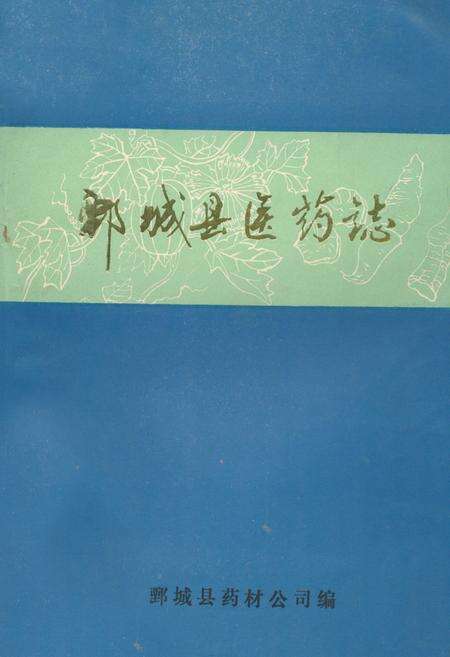 鄄城县医药誌
鄄城县药材公司编